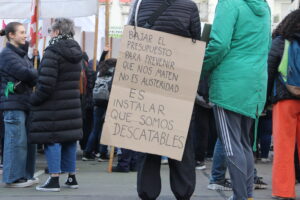 BAJAR EL
PRESUPUESTO
PARA PREVENIR
QUE NOS MATEN
NO ES AUSTERIDAD
ES
INSTALAR
QUE SOMOS
DESCATABLES